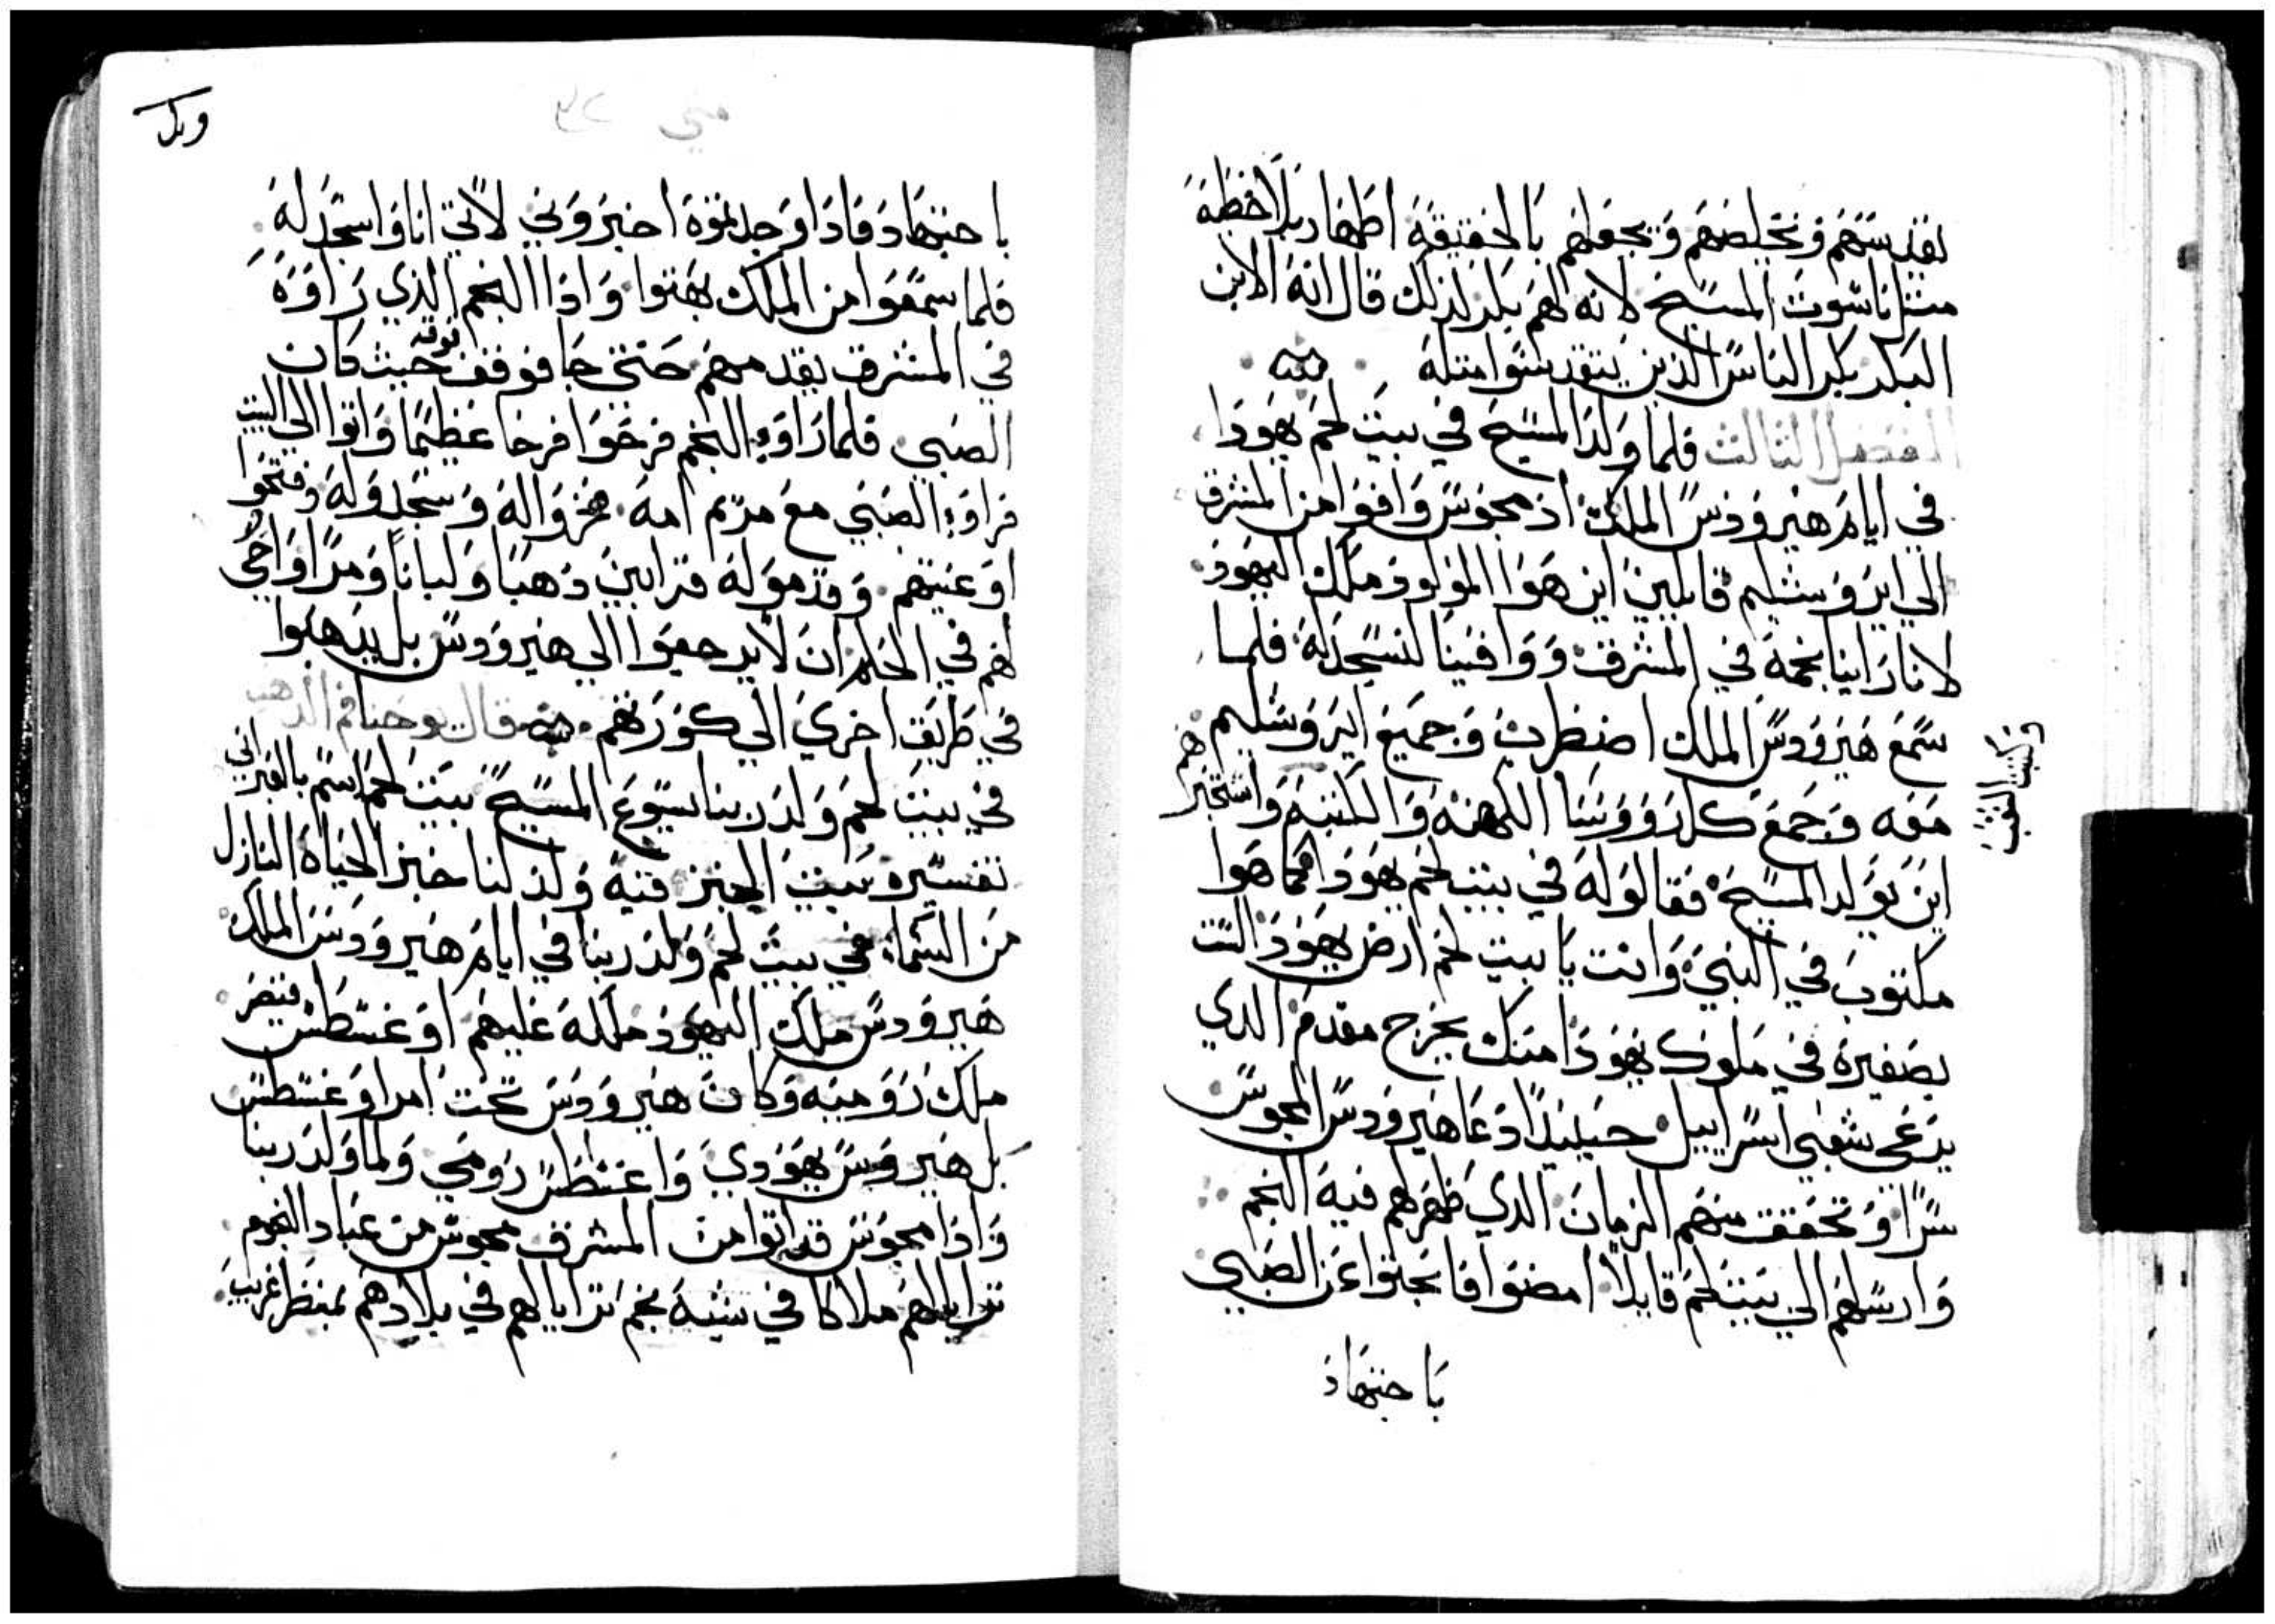 تقديسهم وتخليصهم ويجعلهم بالحقيقة اطهار بلاخطية
مثل ناسوت المسيح لانه لهم بكر لذلك قال انه الابن
البكر بكر الناس الذين يتقدسوا مثله
الفصل الثالث فلما ولد المسيح في بيت لحم يهودا
في ايام هيرودس الملك اذ مجوس وافوا من المشرق
الي ايروشليم قايلين اين هوا المولود ملك اليهود
لانا راينا نجمه في المشرق ووافينا لنسجد له فلما
سمع هيرودس الملك اضطرب وجميع ايروشليم
معه وجمع كل رووسا الكهنة والكتبة واستخبرهم
وكتبة الشعب
اين يولد المسيح فقالو له في بيت لحم يهودا كما هوا
مكتوب في النبي وانت يا بيت لحم ارض يهودا لست
بصغيرة في ملوك يهودا منك يخرج مقدم الدي
يرعي شعبي اسراييل حينيدا دعا هيرودس المجوس
سرا وتحقق منهم الزمان الدي ظهر لهم فيه النجم
وارسلهم الي بيت لحم قايلا امضوا فابحتوا عن الصبي
باجتهاد
متي
باجتهاد فادا وجدتموه اخبروني لاتي انا واسجد له
فلما سمعوا من الملك دهبوا وادا النجم الذي راوه
في المشرق يقدمهم حتي جا فوقف فوقه حيث كان
الصبي فلما راوا النجم فرحوا فرحا عظيما واتوا الي البيت
فراوا الصبي مع مريم امه فخروا له وسجدوله وفتحوا
اوعيتهم وقدموله قرابين دهبا ولبانا ومرا واوحي
لهم في الحلم ان لا يرجعوا الي هيرودس بل يدهبوا
في طريق اخري الي كورتهم قال يوحنا فم الدهب
في بيت لحم ولد ربنا يسوع المسيح بيت لحم اسم بالعبراني
تفسيره بيت الخبز فيه ولد لنا خبز الحياة النازل
من السماء في بيت لحم ولد ربنا في ايام هيرودس الملك
هيرودس ملك اليهود ملكه عليهم اوغسطس قيصر
ملك رومية وكان هيرودس تحت امر اوغسطس
بل هيرودس يهودي واغسطس رومي ولما ولد ربنا
وادا مجوس قد اتوا من المشرق مجوس من عباد النجوم
ترايا لهم ملاكا في شبه نجم ترايا لهم في بلادهم بمنظر غريب